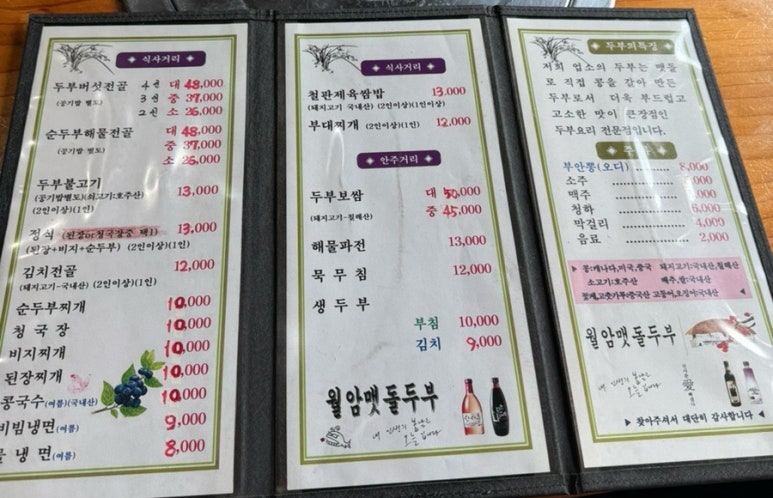 식사거리
두부버섯전골 4인 대 48,000
(공기밥 별도) 3인 중 37,000
2인 소 26,000
순두부해물전골 대 48,000
(공기밥 별도) 중 37,000
소 26,000
두부불고기 13,000
(공기밥별도)(쇠고기:호주산)
(2인이상)(1인)
정식 (된장or청국장중 택1) 13,000
(된장+비지+순두부) (2인이상)(1인)
김치전골 12,000
(돼지고기-국내산) (2인이상)(1인)
순두부찌개 10,000
청국장 10,000
비지찌개 10,000
된장찌개 10,000
콩국수(여름)(국내산) 10,000
비빔냉면(여름) 9,000
물냉면(여름) 8,000
식사거리
철판제육쌈밥 13,000
(돼지고기 국내산) (2인이상)(1인이상)
부대찌개 (2인이상)(1인) 12,000
안주거리
두부보쌈 대 50,000
(돼지고기-칠레산) 중 45,000
해물파전 13,000
묵무침 12,000
생두부
부침 10,000
김치 9,000
월암맷돌두부
두부의특징
저희 업소의 두부는 맷돌
로 직접 콩을 갈아 만든
두부로서 더욱 부드럽고
고소한 맛이 큰장점인
두부요리 전문점입니다.
부안뽕(오디) 8,000
소주
맥주
청하 6,000
막걸리 4,000
음료 2,000
▶ 콩:캐나다,미국,중국 돼지고기:국내산,칠레산
소고기:호주산 배추,쌀:국내산
꽃게,고춧가루:중국산 고등어,오징어:국내산 ◀
월암맷돌두부
▶ 찾아주셔서 대단히 감사합니다 ◀